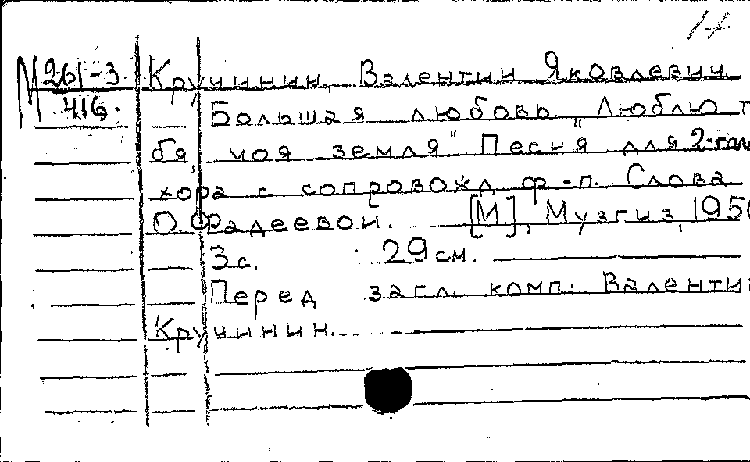 14
М 261-3 Кручинин, Валентин Яковлевич
416. Большая любовь „Люблю т
бя, моя земля" Песня для 2-гол
хора с сопровожд ф-п. Слова
О. Фадеевой. [М], Музгиз, 195
3с. 29 см.
Перед загл. комп.: Валенти
Кручинин.